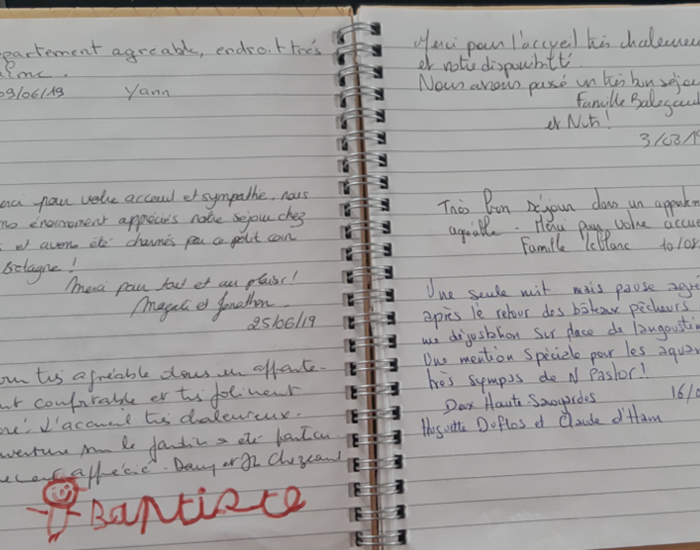 partement agréable, endroit très
alme.
09/06/19 Yann
erci pour votre acceuil et sympathie, nous
ons énormement appréciés notre séjour chez
et avons été charmés par ce petit coin
Bretagne !
Merci pour tout et au plaisir !
Magali et Jonathan
25/06/19
très agréable dans un apparte-
ent confortable et très joliment
oré. L'accueil très chaleureux.
uverture sur le jardin a été particu
apprécié. Dany et JL
Baptiste
Merci pour l'accueil très chaleureu
et votre disponibilité.
Nous avons passé un très bon séjou
Famille
et
3/08/19
Très bon séjour dans un appartem
agréable. Merci pour votre accue
Famille Leblanc 10/08
Une seule nuit mais pause agré
après le retour des bateaux pêcheurs
une dégustation sur place de langoustin
Une mention spéciale pour les aquar
très sympas de N Pastor !
Deux Haute-Savoyardes 16/0
Huguette Duflos et Claude d'Ham